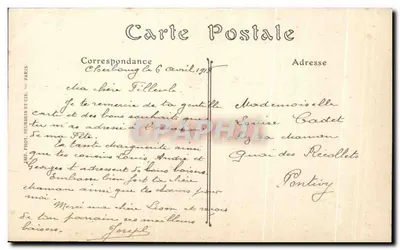 Carte Postale
Correspondance
Adresse
Cherbourg le 6 avril 191
Ma chère Filleule
Je te remercie de ta gentille
carte et des bons souhaits que
tu m'as adressé
de ma Fête.
La tante Marguerite ainsi
que tes cousins Louis, André et
Georges t'adressent de bons baisers.
Embrasse bien fort ta chère
maman ainsi que tes sœurs pour
moi.
Merci ma chère et reçois
de ton parrain ses meilleurs
baisers.
Joseph
Mademoiselle
Cadet
maman
Quai des Récollets
Pontivy
CPAPHIL
PARIS